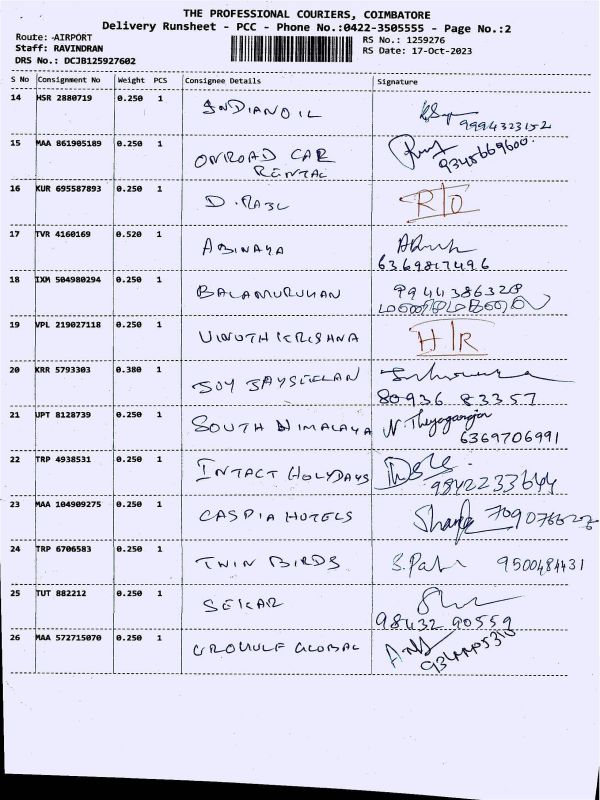 THE PROFESSIONAL COURIERS, COIMBATORE
Delivery Runsheet - PCC - Phone No.:0422-3505555 - Page No.:2
Route: AIRPORT
RS No.: 1259276
Staff: RAVINDRAN
RS Date: 17-Oct-2023
DRS No.: DCJB125927602
S No Consignment No Weight PCS Consignee Details Signature
14 HSR 2880719 0.250 1 INDIANOIL
9994323152
15 MAA 861905189 0.250 1 ONROAD CAR
RENTAL
9345669600
16 KUR 695587893 0.250 1 D. RAJU R/O
17 TVR 4160169 0.520 1 ABINAYA
6369817496
18 IXM 504980294 0.250 1 BALAMURUKAN 9944386328
19 VPL 219027118 0.250 1 VINOTH KRISHNA H/R
20 KRR 5793303 0.380 1 JOY JAYSEELAN
80936 83357
21 UPT 8128739 0.250 1 SOUTH HIMALAYA N. Theyagarajan
6369706991
22 TRP 4938531 0.250 1 INTACT HOLYDAYS
9842233644
23 MAA 104909275 0.250 1 CASPIA HOTELS
24 TRP 6706583 0.250 1 TWIN BIRDS 9500484431
25 TUT 882212 0.250 1 SEKAR
98432 90559
26 MAA 572715070 0.250 1 GLOBAL